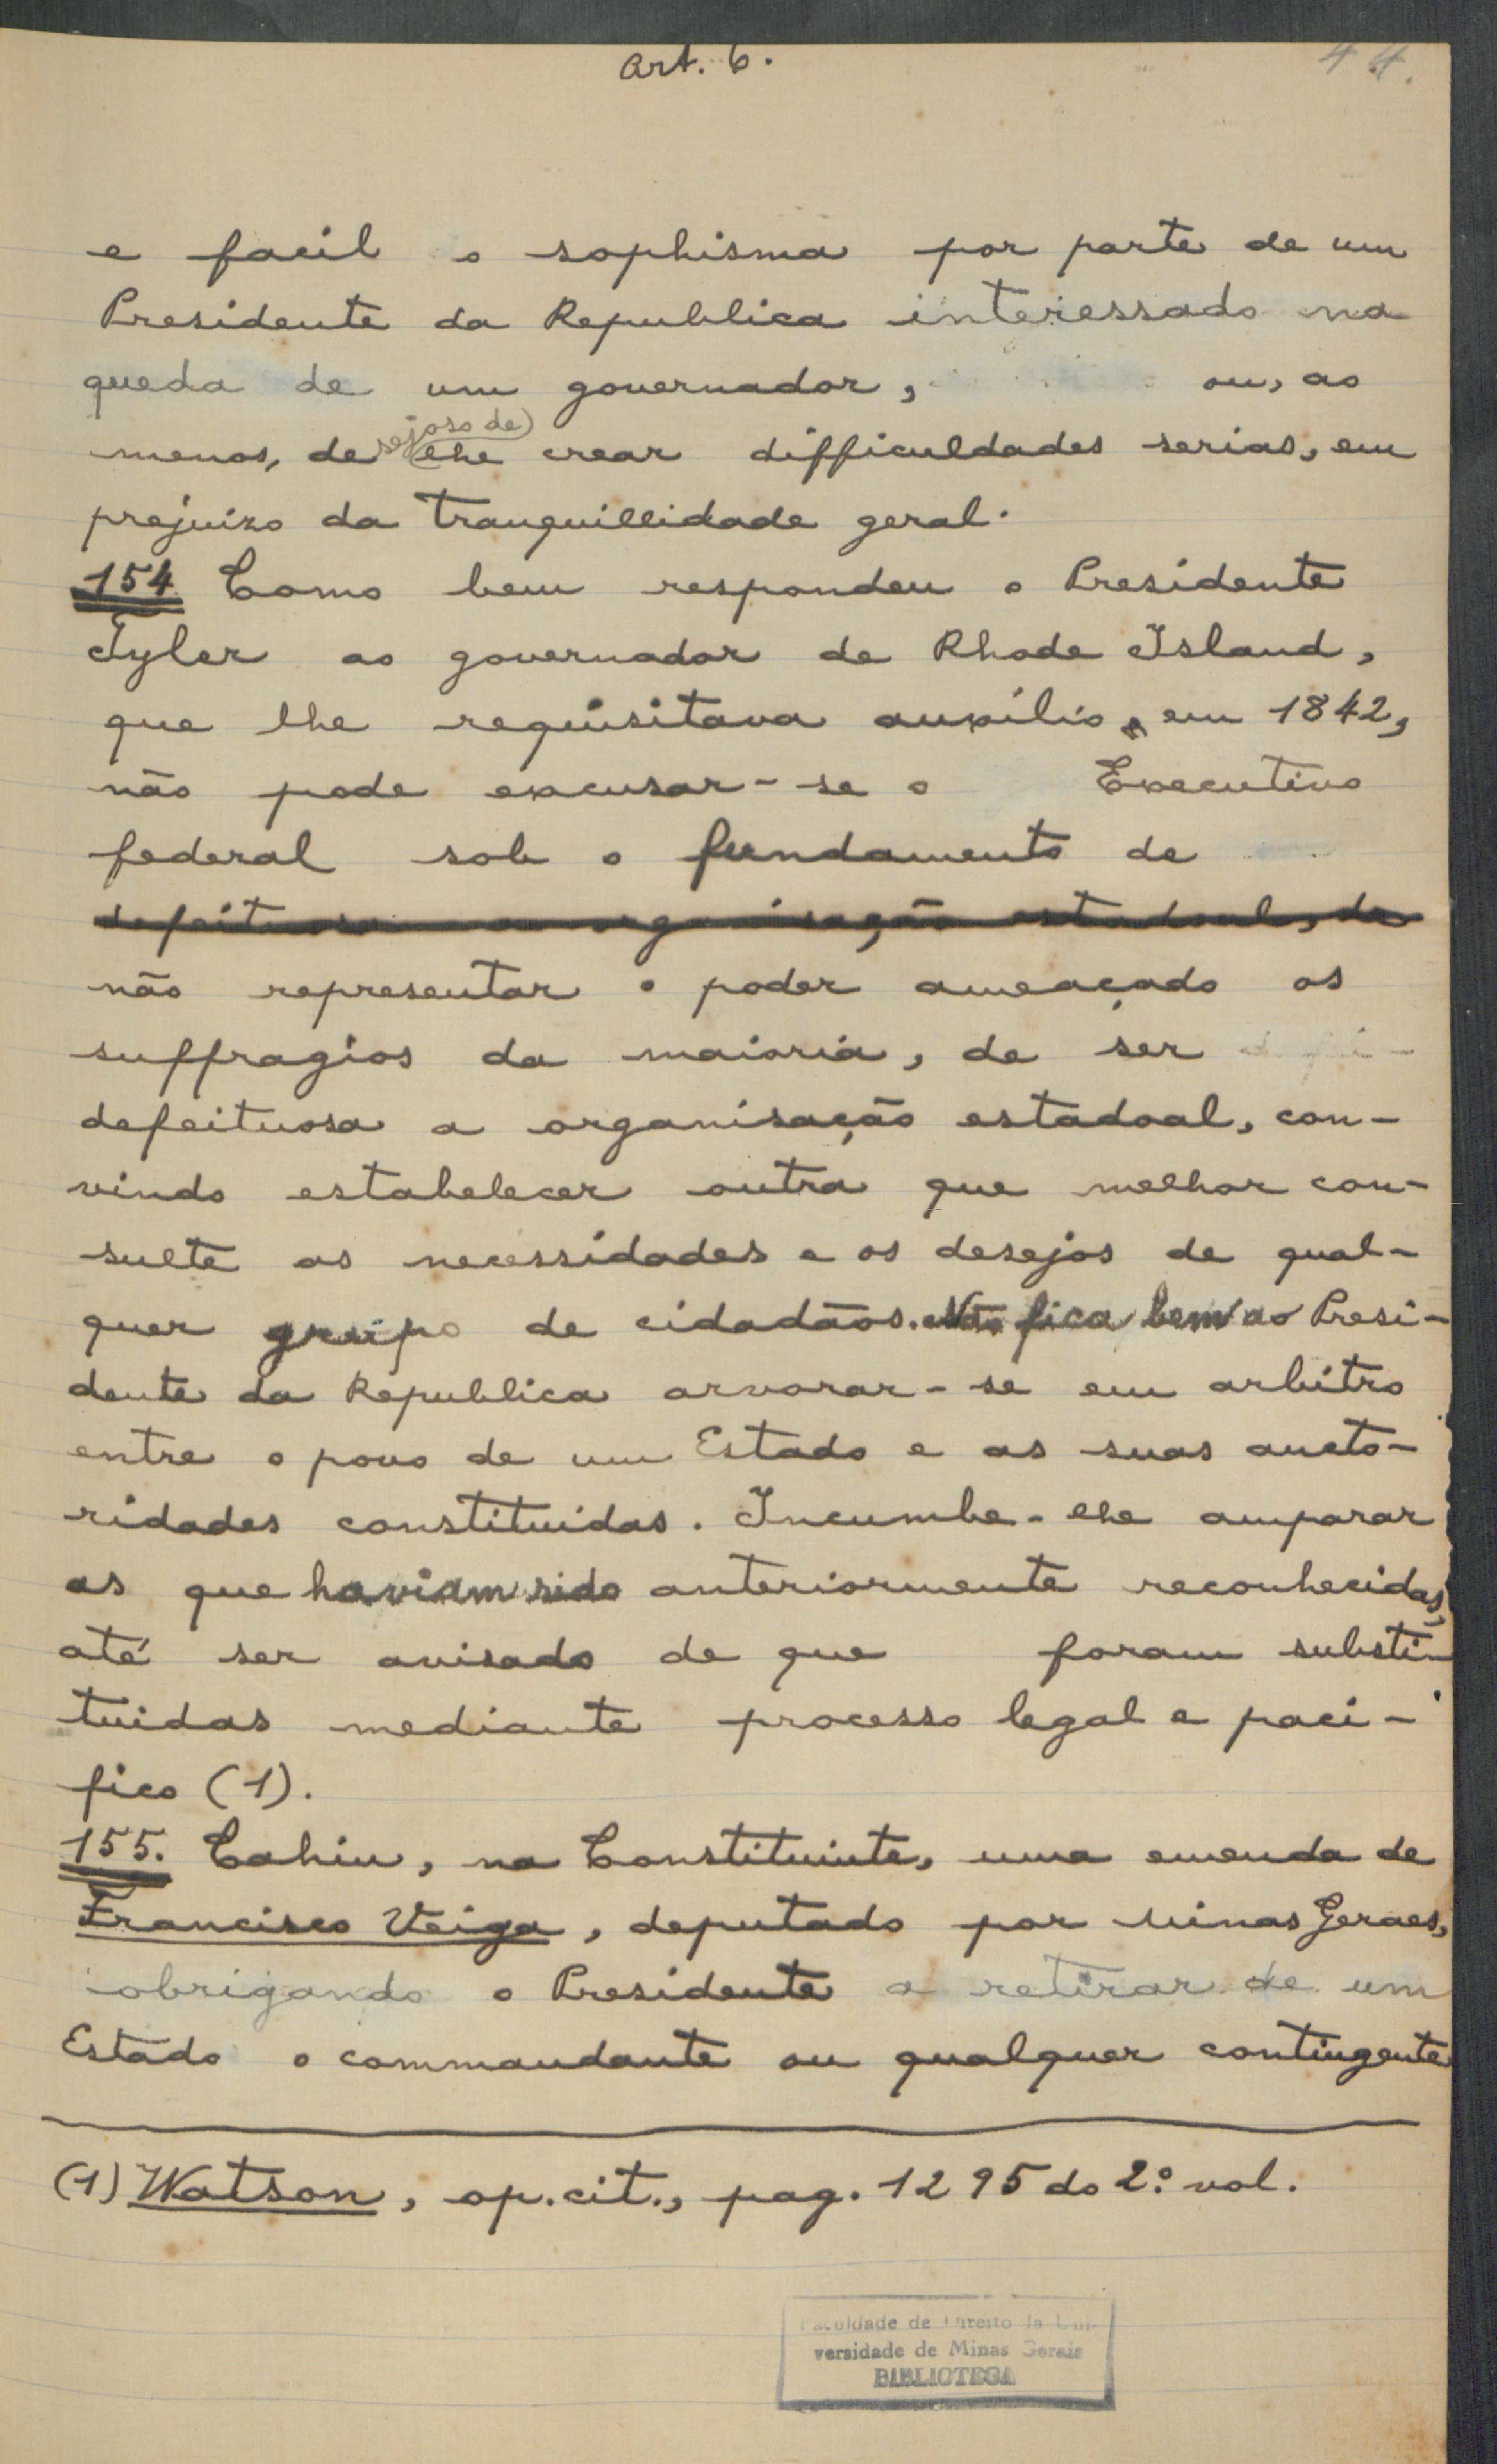 Art. 6.
44.
e facil o sophisma por parte de um
Presidente da Republica interessado na
queda de um governador, ou, ao
menos, desejoso de lhe crear difficuldades serias, em
prejuizo da tranquillidade geral.
154 Como bem respondeu o Presidente
Tyler ao governador de Rhode Island,
que lhe requisitava auxilio, em 1842,
não pode excusar-se o Executivo
federal sob o fundamento de
defeituosa a organisação estadoal, de
não representar o poder ameaçado os
suffragios da maioria, de ser
defeituosa a organisação estadoal, con-
vindo estabelecer outra que melhor con-
sulte as necessidades e os desejos de qual-
quer grupo de cidadãos. Não fica bem ao Presi-
dente da Republica arvorar-se em arbitro
entre o povo de um Estado e as suas aucto-
ridades constituidas. Incumbe-lhe amparar
as que haviam sido anteriormente reconhecidas,
até ser avisado de que foram substi-
tuidas mediante processo legal e paci-
fico (1).
155. Cahiu, na Constituinte, uma emenda de
Francisco Veiga, deputado por Minas Geraes,
obrigando o Presidente a retirar de um
Estado o commandante ou qualquer contingente
(1) Watson, op. cit., pag. 1295 do 2º vol.
Faculdade de Direito da Uni-
versidade de Minas Gerais
BIBLIOTECA